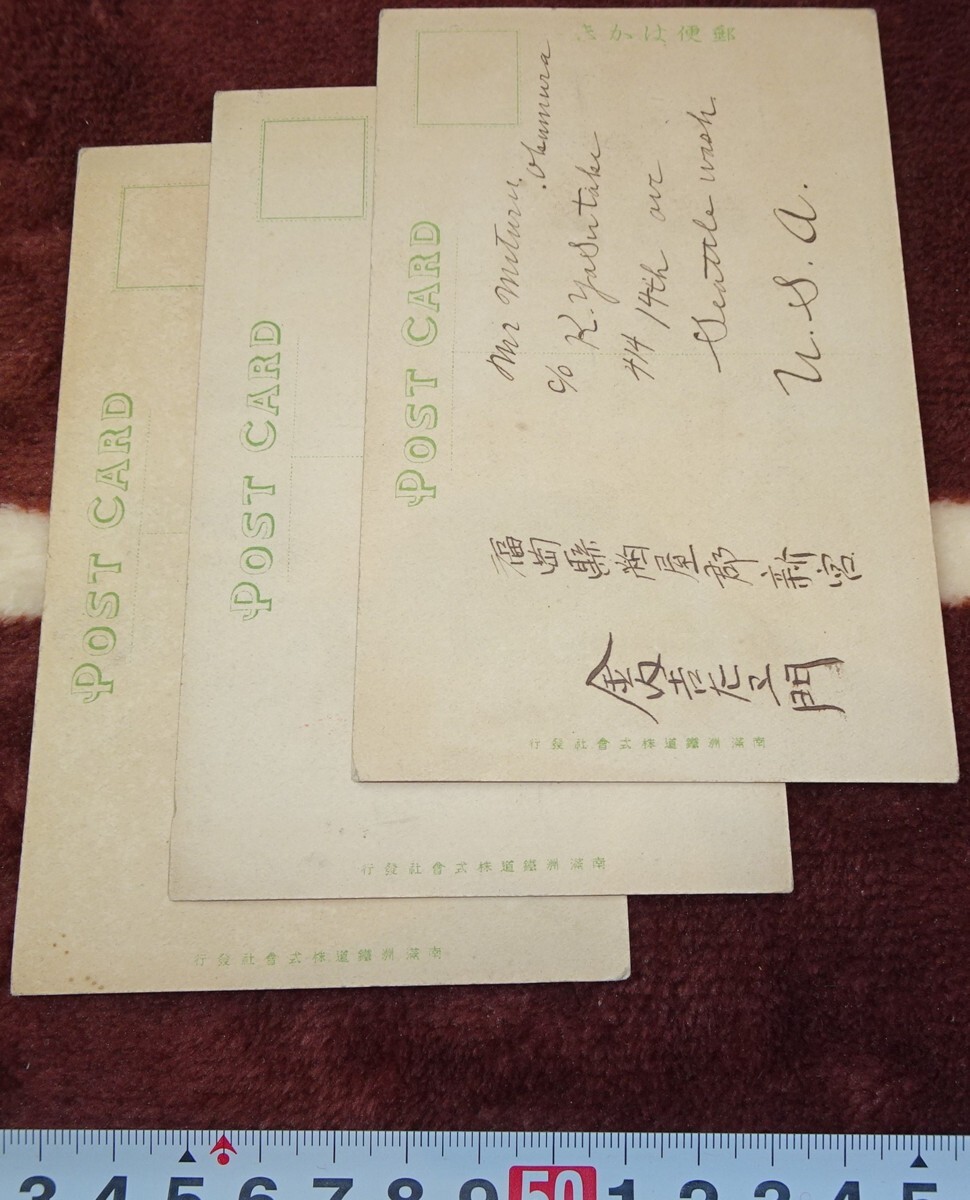 郵便はかき
POST CARD
Mr Mituru
Okumura
c/o K. Yasutake
414 14th ave
Seattle wash.
U. S. A.
福岡縣粕屋郡新宮
南滿洲鐵道株式會社發行
POST CARD
南滿洲鐵道株式會社發行
POST CARD
南滿洲鐵道株式會社發行
3 4 5 6 7 8 9 50 1 2 3 4 5